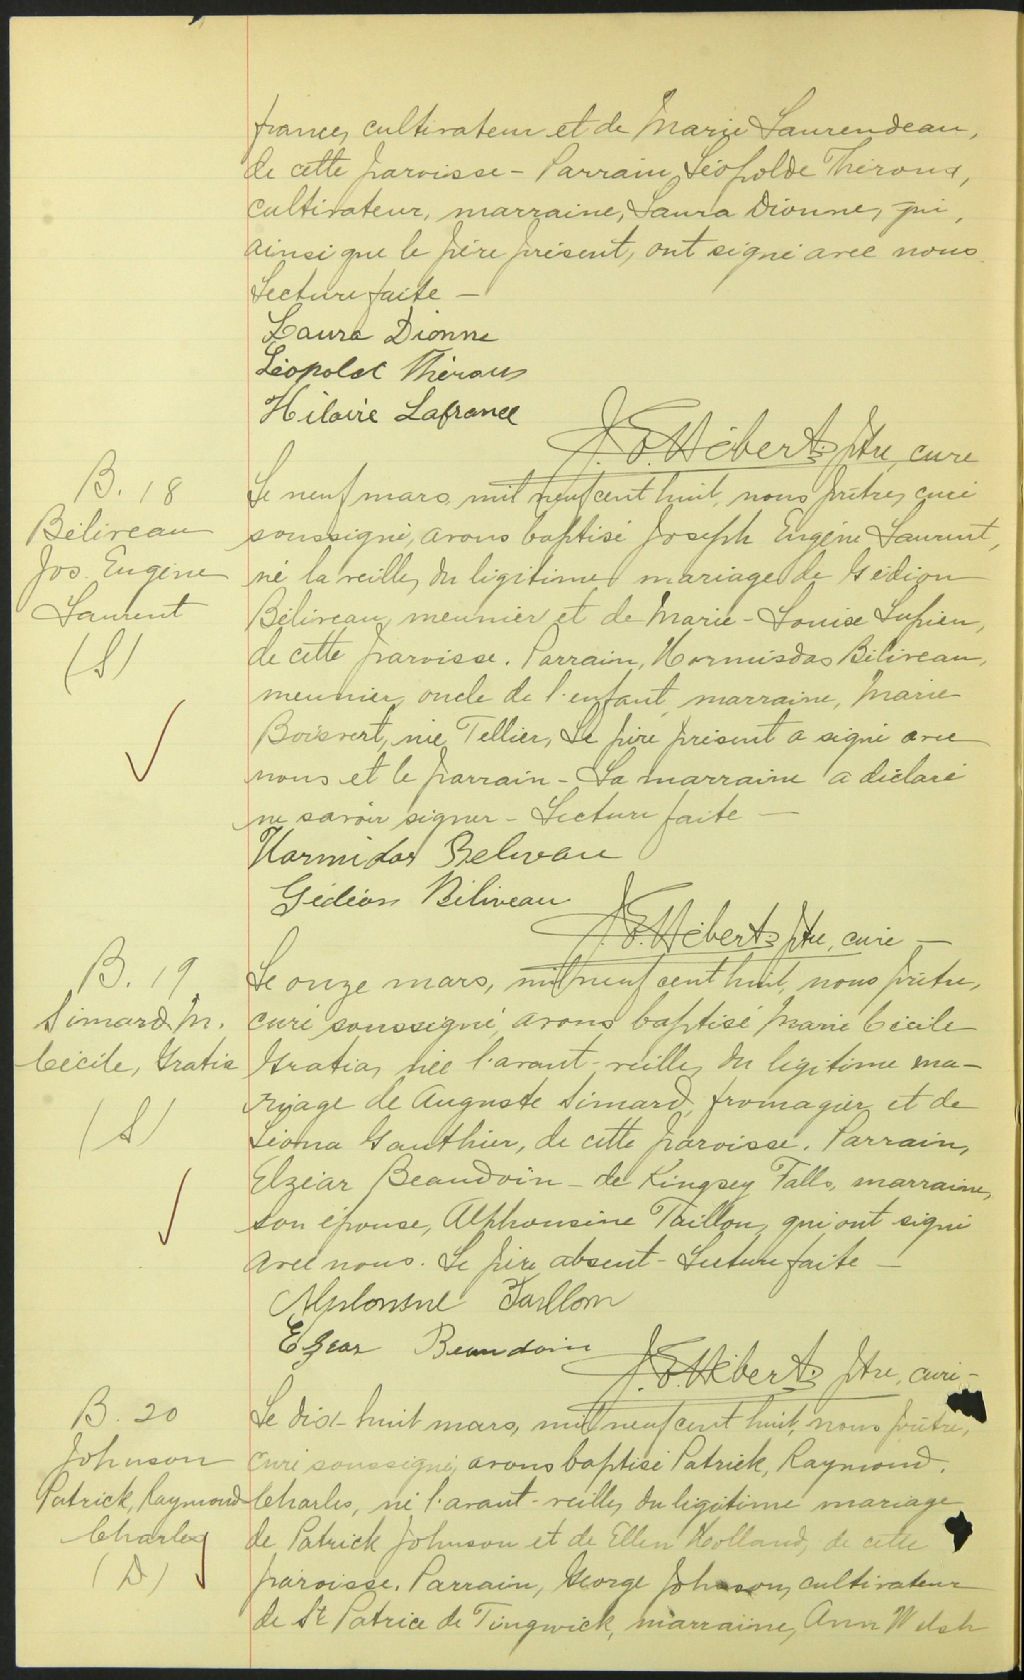 france, cultivateur et de Marie Laurendeau,
de cette paroisse - Parrain, Léopolde Théroux,
cultivateur, marraine, Laura Dionne, qui,
ainsi que le père présent, ont signé avec nous.
Lecture faite -
Laura Dionne
Léopold Théroux
Hilaire Lafrance
J. E. Hébert, Ptre, curé
B. 18
Béliveau
Jos. Eugène
Laurent
(S)
Le neuf mars, mil neuf cent huit, nous prêtre, curé
soussigné, avons baptisé Joseph Eugène Laurent,
né la veille, du légitime mariage de Gédéon
Béliveau, meunier et de Marie-Louise Lupien,
de cette paroisse. Parrain, Hormisdas Béliveau,
meunier, oncle de l'enfant, marraine, Marie
Boisvert, née Tellier, Le père présent a signé avec
nous et le parrain - La marraine a déclaré
ne savoir signer - Lecture faite -
Hormidas Beliveau
Gédéon Béliveau
J. E. Hébert, Ptre, curé -
B. 19
Simard, M.
Cécile, Gratia
(S)
Le onze mars, mil neuf cent huit, nous prêtre,
curé soussigné, avons baptisé Marie Cécile
Gratia, née l'avant-veille, du légitime ma-
riage de Auguste Simard, fromagier et de
Léona Gauthier, de cette paroisse. Parrain,
Elzéar Beaudoin - de Kingsey Falls, marraine,
son épouse, Alphonsine Taillon, qui ont signé
avec nous. Le père absent - Lecture faite -
Alphonsine Taillon
Elzear Beaudoin
J. E. Hébert, Ptre, curé -
B. 20
Johnson
Patrick, Raymond
Charles
(D)
Le dix-huit mars, mil neuf cent huit, nous prêtre,
curé soussigné, avons baptisé Patrick, Raymond,
Charles, né l'avant-veille, du légitime mariage
de Patrick Johnson et de Ellen Holland, de cette
paroisse. Parrain, George Johnson, cultivateur
de St Patrice de Tingwick, marraine, Ann Welsh